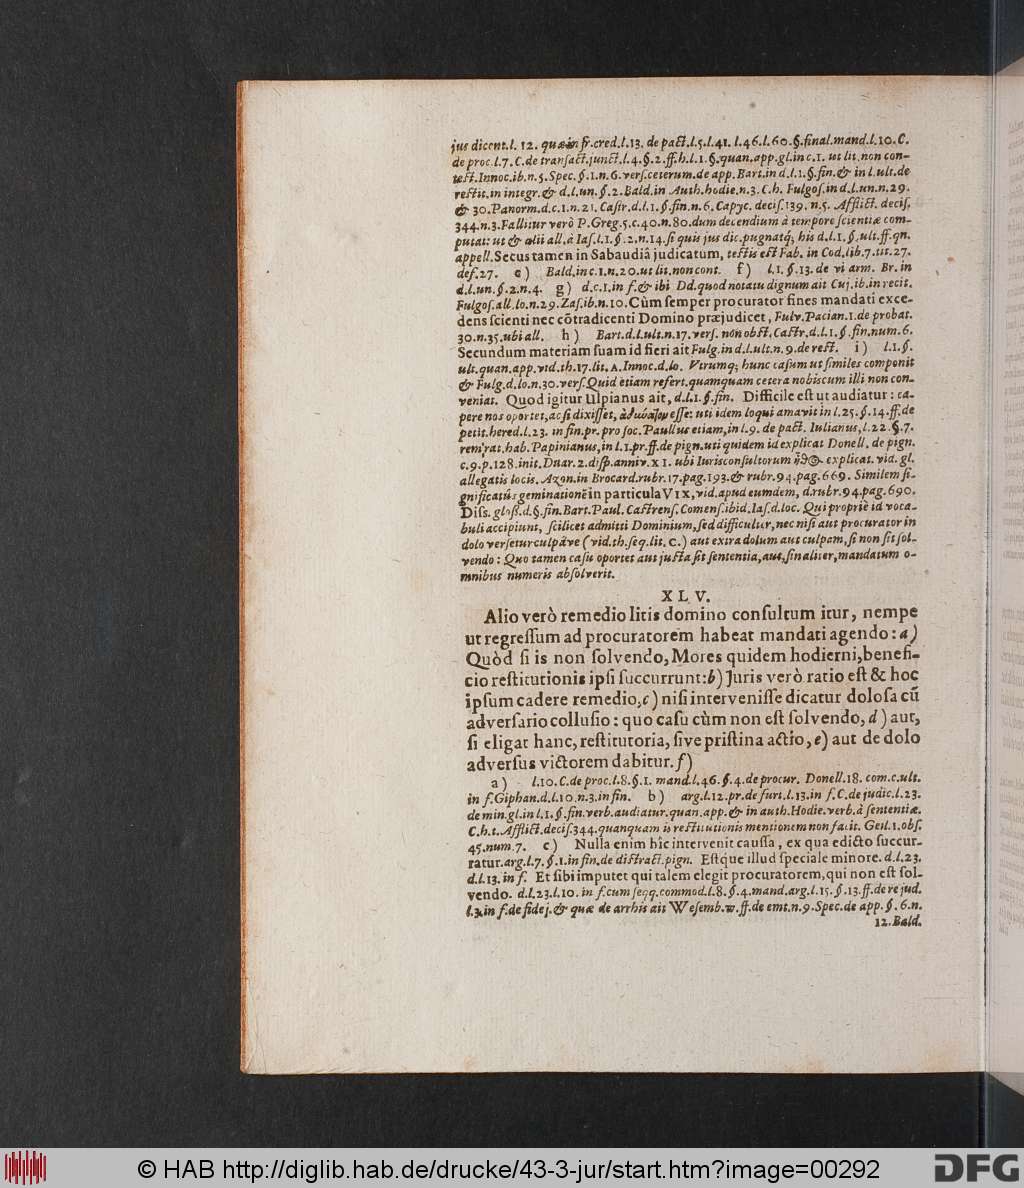 jus dicent.l. 12. quæ in fr.cred.l.13. de pact.l.5.l.41. l.46.l.60.§.final.mand.l.10.C.
de proc.l.7.C.de transact.junct.l.4.§.2.ff.h.l.1.§.quan.app.gl.in c.1. ut lit.non con-
test.Innoc.ib.n.5.Spec.§.1.n.6.vers.ceterum.de app.Bart.in d.l.1.§.fin.& in l.ult.de
restit.in integr.& d.l.un.§.2.Bald.in Auth.hodie.n.3.C.h. Fulgos.in d.l.un.n.29.
& 30.Panorm.d.c.1.n.21.Castr.d.l.1.§.fin.n.6.Capyc.decis.139.n.5. Afflict.decis.
344.n.3.Fallitur verò P.Greg.5.c.40.n.80.dum decendium à tempore scientiæ com-
putat: ut & alii all.à Ias.l.1.§.2.n.14.si quis jus dic.pugnatq; his d.l.1.§.ult.ff.qn.
appell.Secus tamen in Sabaudiâ judicatum, testis est Fab. in Cod.lib.7.tit.27.
def.27. e) Bald.in c.1.n.20.ut lit.non cont. f) l.1.§.13.de vi arm. Br.in
d.l.un.§.2.n.4. g) d.c.1.in f.& ibi Dd.quod notatu dignum ait Cuj.ib.in recit.
Fulgos.all.lo.n.29.Zas.ib.n.10.Cùm semper procurator fines mandati exce-
dens scienti nec cõtradicenti Domino præjudicet, Fulv.Pacian.1.de probat.
30.n.35.ubi all. h) Bart.d.l.ult.n.17.vers. non obst.Castr.d.l.1.§.fin.num.6.
Secundum materiam suam id fieri ait Fulg.in d.l.ult.n.9.de rest. i) l.1.§.
ult.quan.app.vid.th.17.lit.A.Innoc.d.lo. Utrumq; hunc casum ut similes componit
& Fulg.d.lo.n.30.vers.Quid etiam refert.quamquam cetera nobiscum illi non con-
veniat. Quod igitur Ulpianus ait, d.l.1.§.fin. Difficile est ut audiatur: ca-
pere nos oportet,ac si dixisset, ἀδύνατον esse: uti idem loqui amavit in l.25.§.14.ff.de
petit.hered.l.23. in fin.pr.pro soc.Paullus etiam,in l.9. de pact. Iulianus,l.22.§.7.
rem rat.hab. Papinianus,in l.1.pr.ff.de pign.uti quidem id explicat Donell. de pign.
c.9.p.128.init.Duar.2.disp.anniv.XI. ubi Iurisconsultorum ἦθος explicat.vid.gl.
allegatis locis. Azon.in Brocard.rubr.17.pag.193.& rubr.94.pag.669. Similem si-
gnificatús geminationẽ in particula VIX,vid.apud eumdem, d.rubr.94.pag.690.
Diss.gloss.d.§.fin.Bart.Paul.Castrens.Comens.ibid.Ias.d.loc. Qui propriè id voca-
buli accipiunt, scilicet admitti Dominium,sed difficultur,nec nisi aut procurator in
dolo versetur culpâve (vid.th.seq.lit.c.) aut extra dolum aut culpam,si non sit sol-
vendo: Quo tamen casu oportet aut justa sit sententia,aut,finaliter,mandatum o-
mnibus numeris absolverit.
XLV.
Alio verò remedio litis domino consultum itur, nempe
ut regressum ad procuratorem habeat mandati agendo: a)
Quòd si is non solvendo, Mores quidem hodierni,benefi-
cio restitutionis ipsi succurrunt:b) Juris verò ratio est & hoc
ipsum cadere remedio,c) nisi intervenisse dicatur dolosa cũ
adversario collusio: quo casu cùm non est solvendo, d) aut,
si eligat hanc, restitutoria, sive pristina actio, e) aut de dolo
adversus victorem dabitur. f)
a) l.10.C.de proc.l.8.§.1. mand.l.46.§.4.de procur. Donell.18. com.c.ult.
in f.Giphan.d.l.10.n.3.in fin. b) arg.l.12.pr.de furt.l.13.in f.C.de judic.l.23.
de min.gl.in l.1.§.fin.verb.audiatur.quan.app.& in auth.Hodie.verb.à sententiæ.
C.h.t.Afflict.decis.344.quanquam is restitutionis mentionem non facit. Geil.1.obs.
45.num.7. c) Nulla enim hîc intervenit caussa, ex qua edicto succur-
ratur.arg.l.7.§.1.in fin.de distract.pign. Estque illud speciale minore. d.l.23.
d.l.13.in f. Et sibi imputet qui talem elegit procuratorem,qui non est sol-
vendo. d.l.23.l.10. in f.cum seqq.commod.l.8.§.4.mand.arg.l.15.§.13.ff.de re jud.
l.3.in f.de fidej.& quæ de arrhis ait Wesemb.w.ff.de emt.n.9.Spec.de app.§.6.n.
12.Bald.
© HAB http://diglib.hab.de/drucke/43-3-jur/start.htm?image=00292
DFG